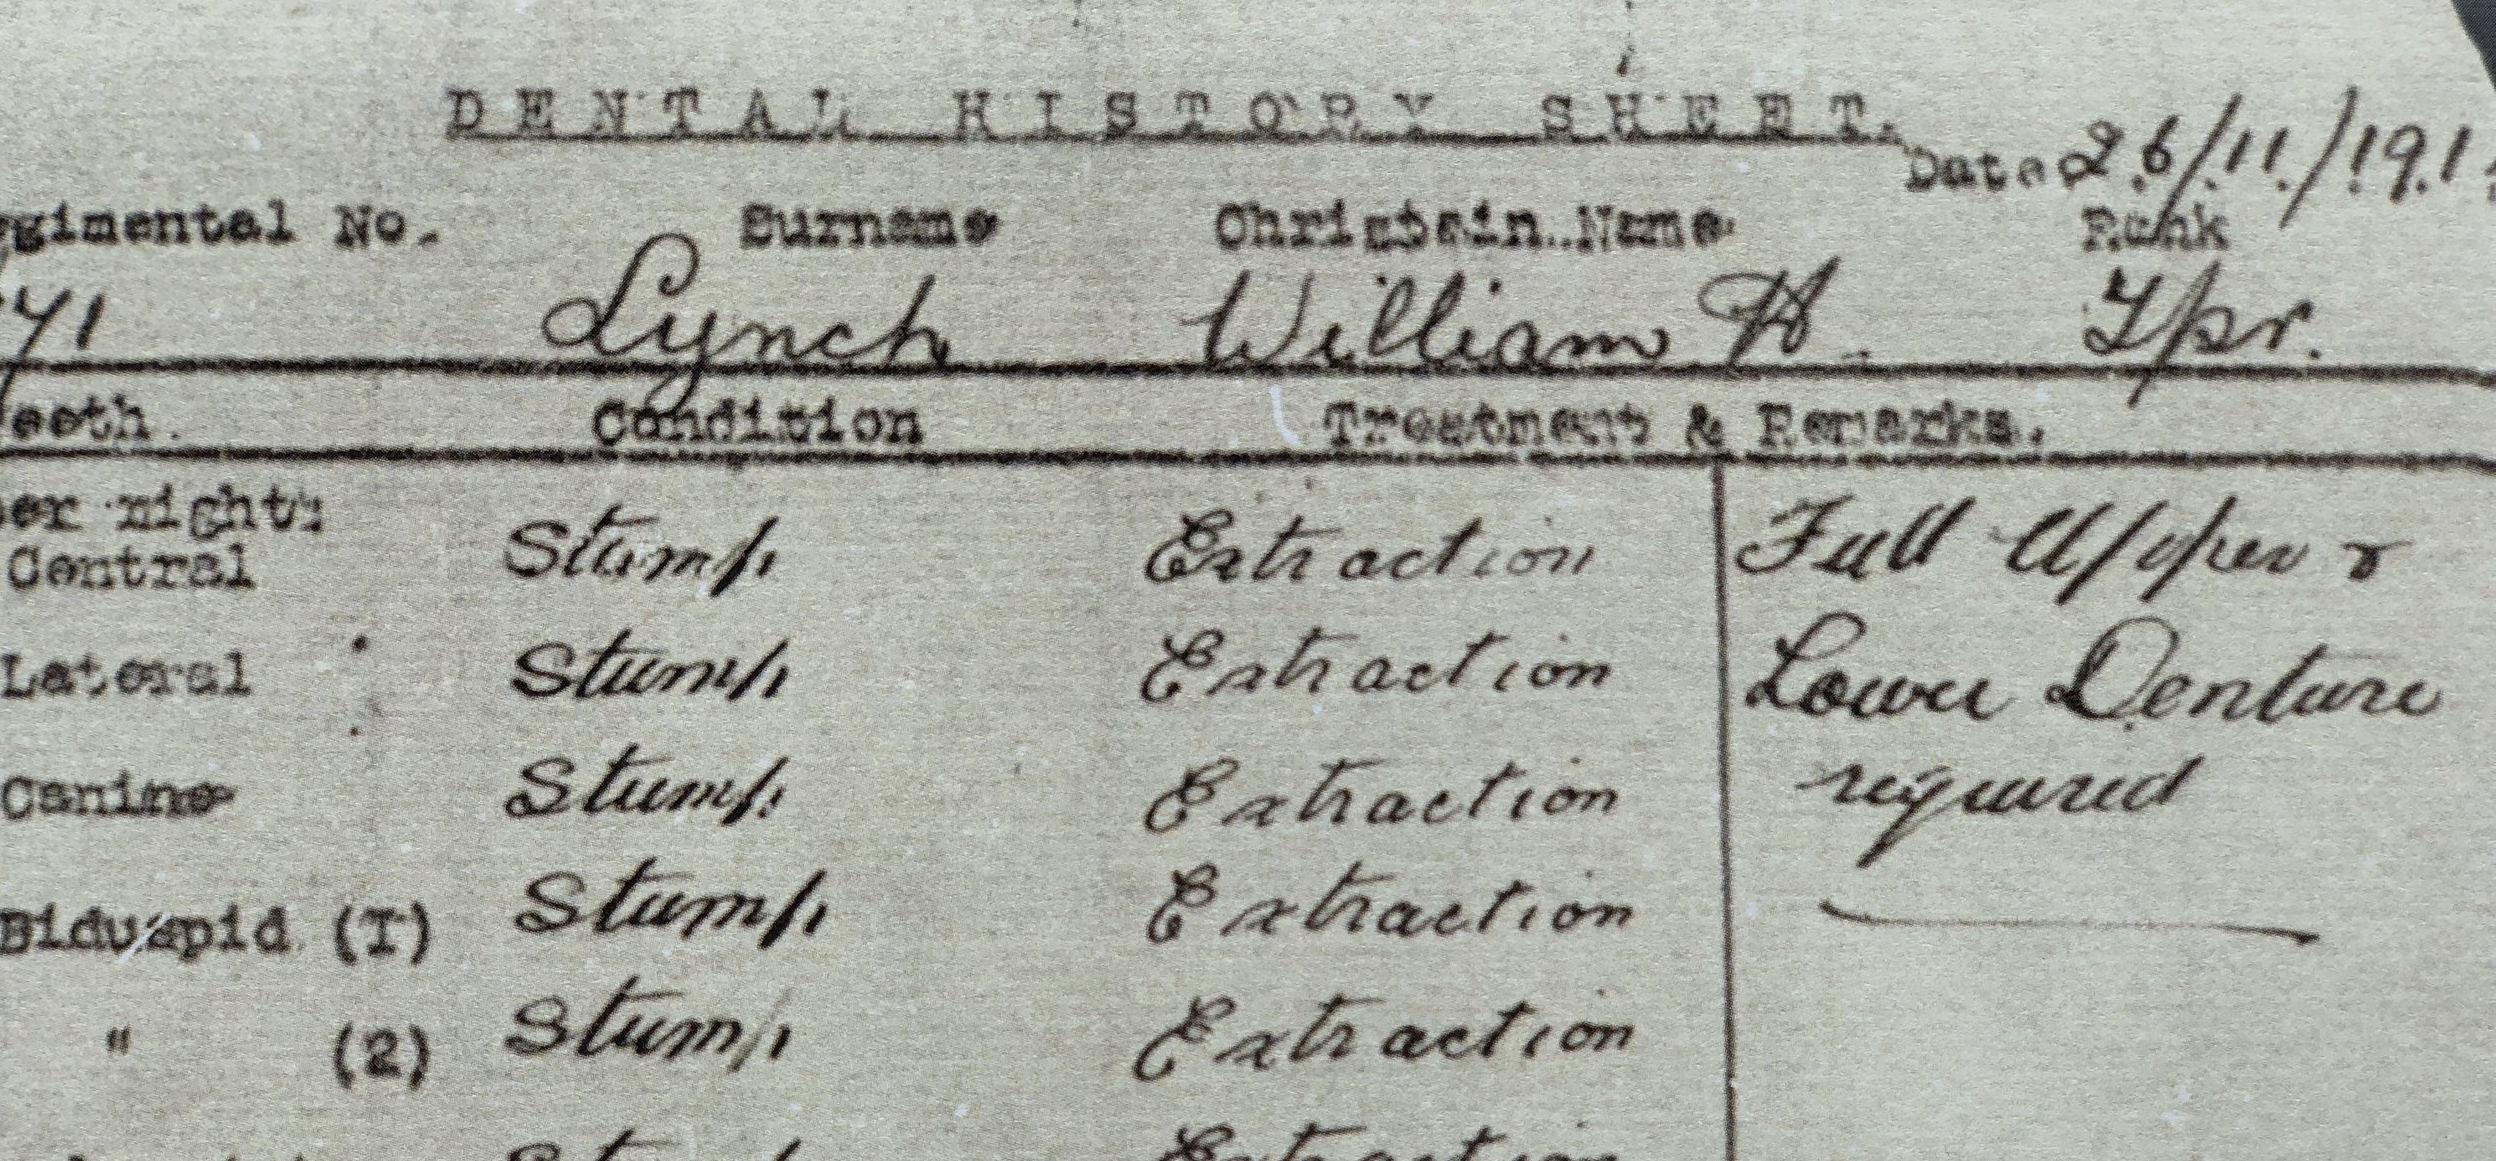 DENTAL HISTORY SHEET.
Date 26/11/191
gimental No. Surname Christain Name Rank
71 Lynch William H. Tpr.
eeth. Condition Treatment & Remarks.
er right:
Central Stump Extraction Full Upper &
Lateral Stump Extraction Lower Denture
Canine Stump Extraction required
Bicuspid (I) Stump Extraction
" (2) Stump Extraction
Stump Extraction